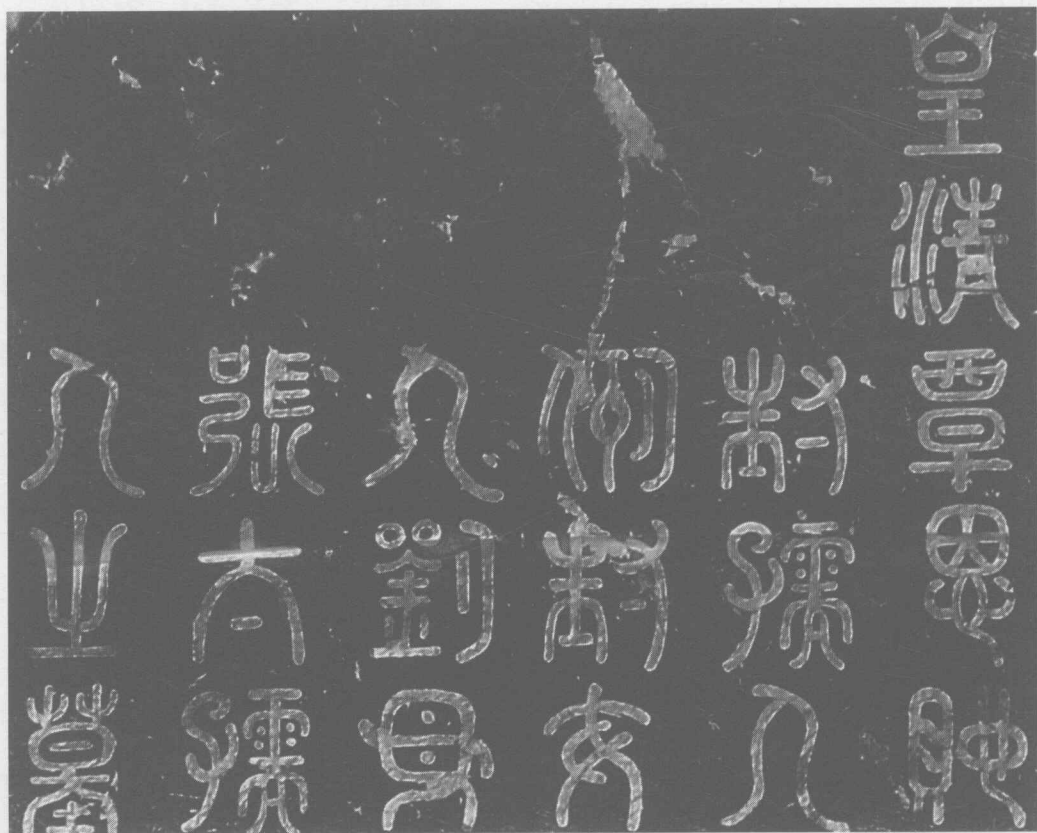 皇清覃恩貤
封孺人
例封安
人劉母
張太孺
人之墓